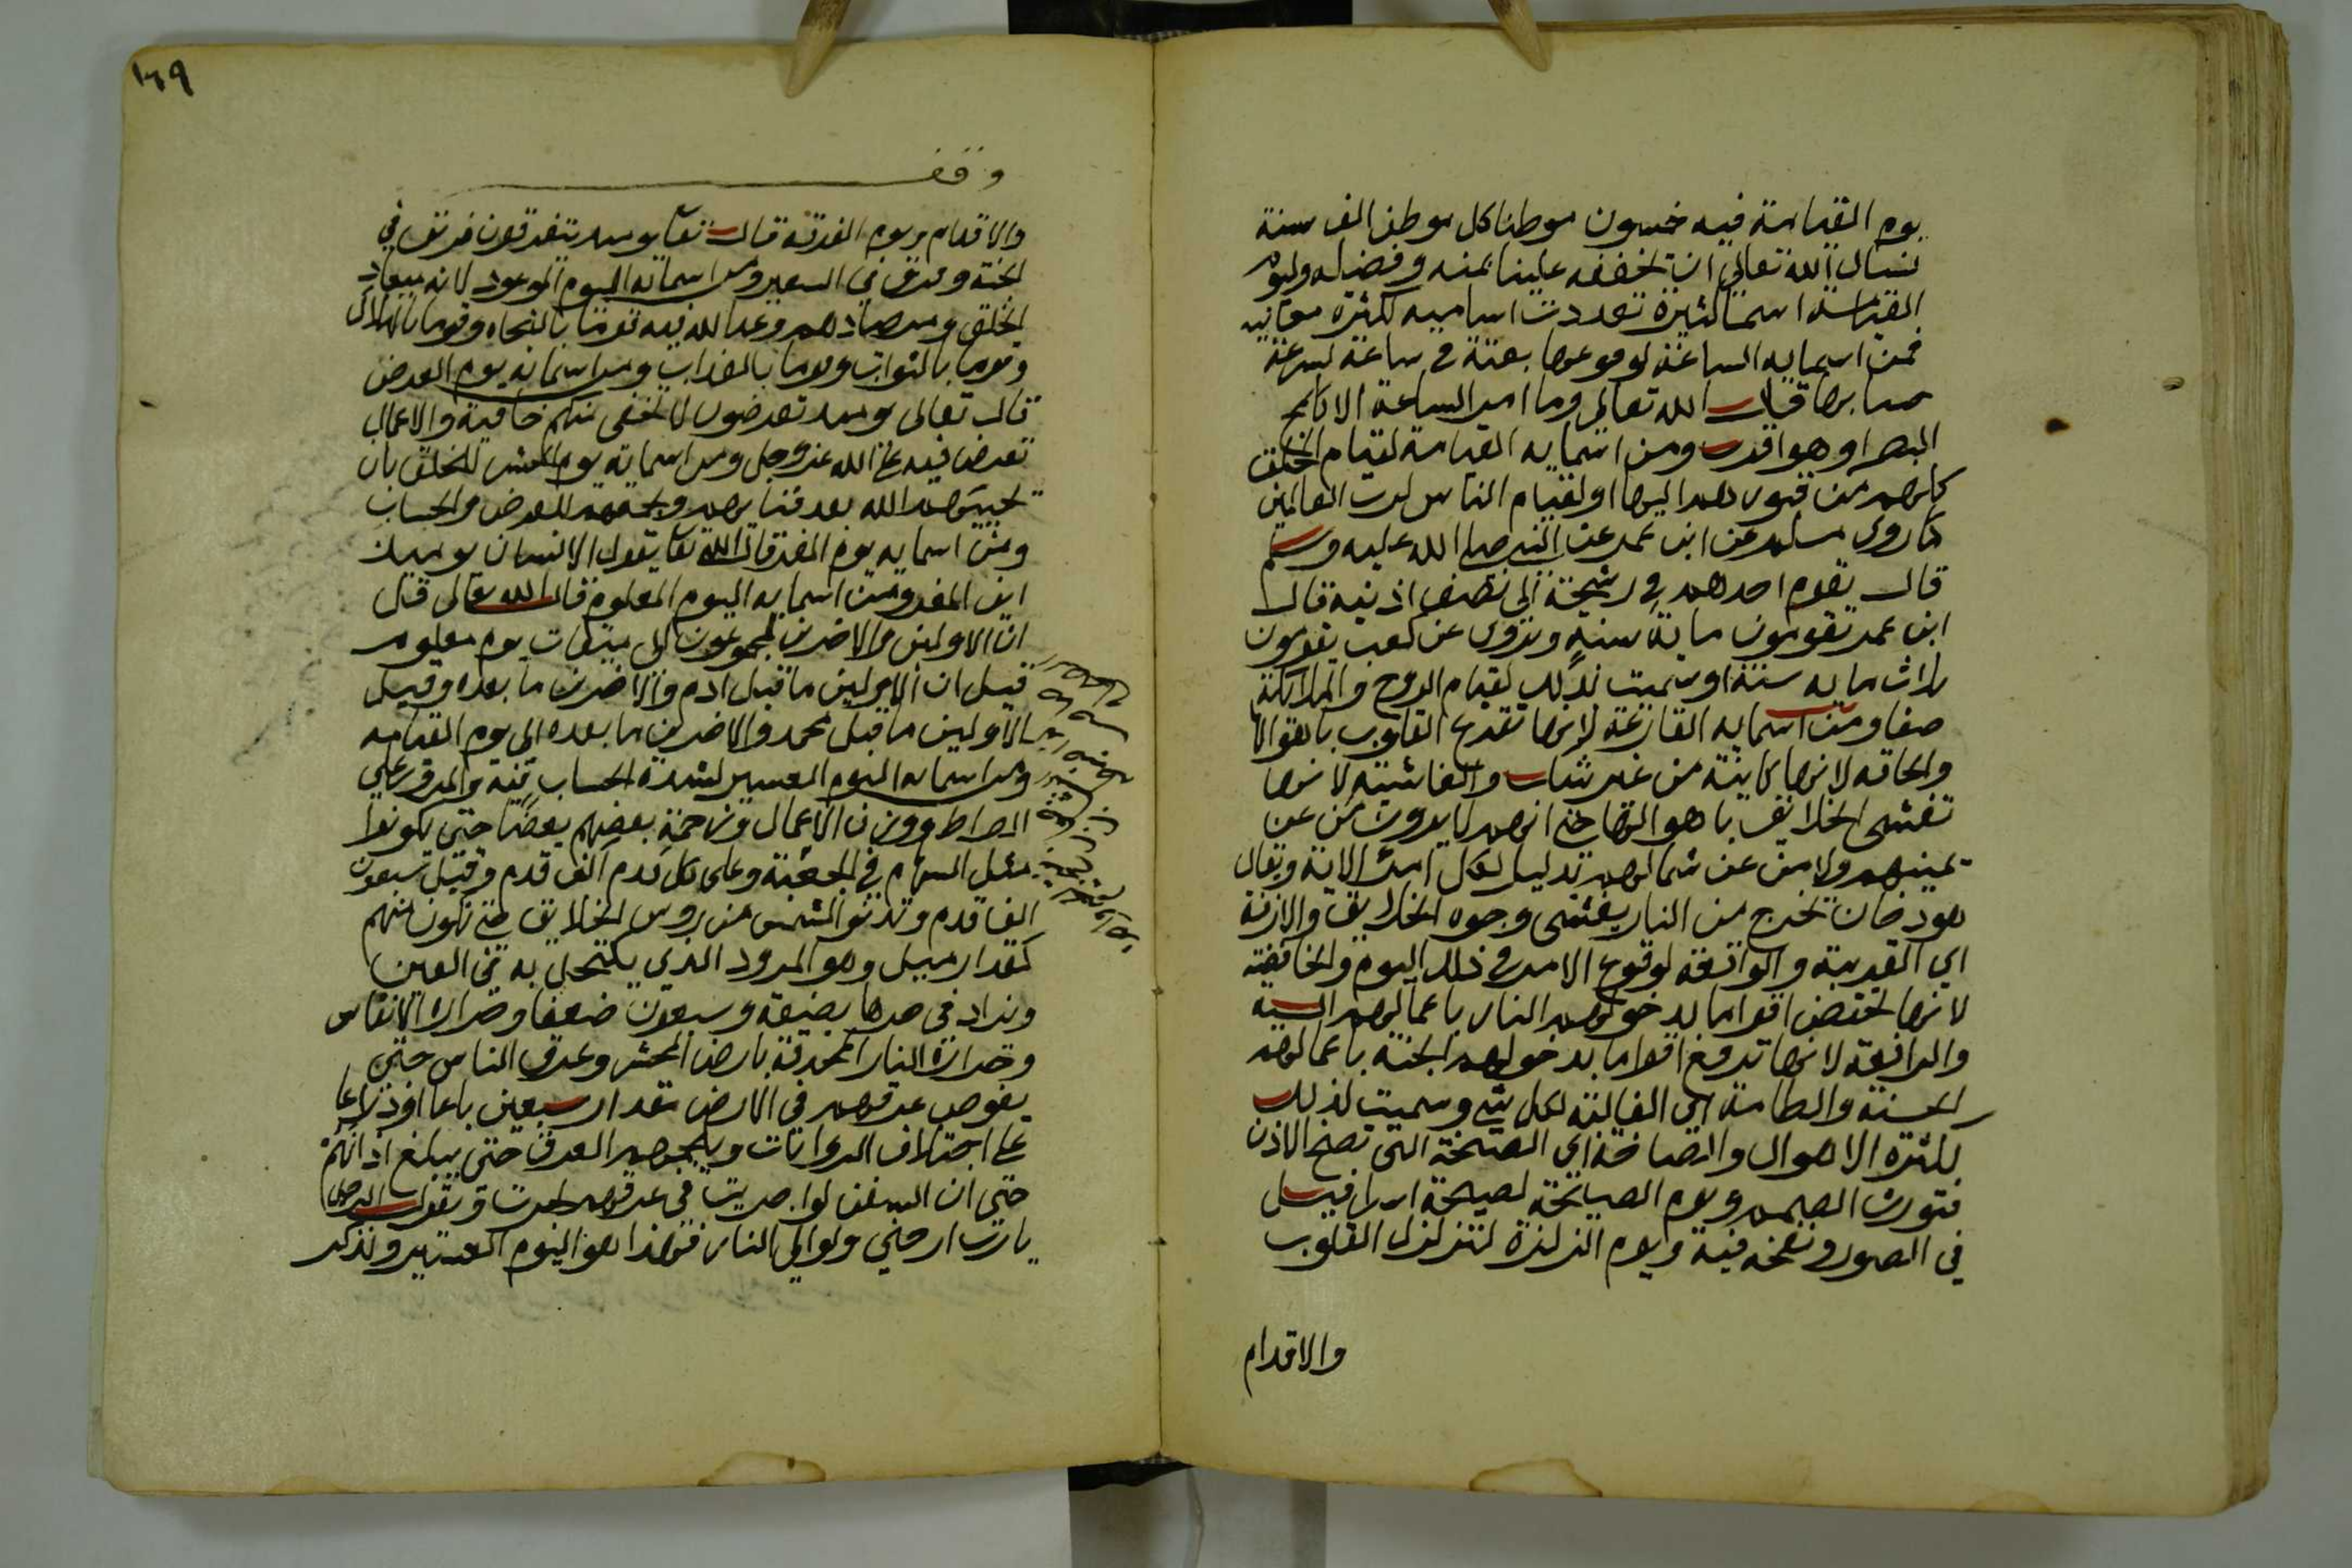 يوم القيامة فيه خمسون موطنا كل موطن الف سنة
نسال الله تعالى ان يخففه علينا بمنه وفضله وليوم
القيامة اسما كثيرة تعددت اساميه لكثرة معانيه
فمن اسمايه الساعة لوقوعها بغتة في ساعة لسرعة
حسابها قال الله تعالى وما امر الساعة الا كلمح
البصر او هو اقرب ومن اسمايه القيامة لقيام الخلق
كلهم من قبورهم اليها او لقيام الناس لرب العالمين
كما روى مسلم عن ابن عمر عن النبي صلى الله عليه وسلم
قال يقوم احدهم في رشحه الى نصف اذنيه قال
ابن عمر يقومون ماية سنة ويروى عن كعب يقومون
ثلاث مايه سنة او سميت بذلك لقيام الروح والملائكة
صفا ومن اسمايه القارعة لانها تقرع القلوب باهوالها
والحاقه لانها كاينة من غير شك والغاشية لانها
تغشى الخلائق باهوالها حتى انهم لا يدرون من عن
يمينهم ولا من عن شمالهم بدليل لكل امرئ الاية ويقال
هو دخان يخرج من النار يغشى وجوه الخلايق والازفة
اي القريبة والواقعة لوقوع الامر في ذلك اليوم والخافضة
لانها تخفض اقواما بدخولهم النار باعمالهم السيه
والرافعة لانها ترفع اقواما بدخولهم الجنة باعمالهم
الحسنة والطامة اي الغالبة لكل شي وسميت لذلك
لكثرة الاهوال والصاخة اي الصيحة التي تصخ الاذن
فتورث الصمم ويوم الصيحة لصيحة اسرافيل
في الصور ونفخه فيه ويوم الزلزلة لتزلزل القلوب
والاقدام
١٦٩
وقف
والاقدام ويوم الفرقة قال تعالى يومئذ يتفرقون فريق في
الجنة وفريق في السعير ومن اسمائه اليوم الموعود لانه ميعاد
الخلق ومرصادهم وعد الله فيه قوما بالنجاه وقوما بالهلاك
وقوما بالثواب وقوما بالعذاب ومن اسمائه يوم العرض
قال تعالى يومئذ تعرضون لا تخفى منكم خافية والاعمال
تعرض فيه على الله عز وجل ومن اسمايه يوم الحشر للخلق بان
يحييهم الله بعد فنايهم ويجمعهم للعرض والحساب
ومن اسمايه يوم المفر قال الله تعالى يقول الانسان يومئذ
اين المفر ومن اسمايه اليوم المعلوم قال الله تعالى قل
ان الاولين والاخرين لمجموعون الى ميقات يوم معلوم
قيل ان الاولين ما قبل ادم والاخرين ما بعده وقيل
الاولين ما قبل محمد والاخرين ما بعده الى يوم القيامه
ومن اسمائه اليوم العسير لشدة الحساب فيه والمرور على
الصراط ووزن الاعمال وزحمة بعضهم بعضا حتى يكونوا
مثل السهام في الجعبة وعلى كل قدم الف قدم وقيل سبعون
الف قدم وتدنو الشمس من روس الخلايق حتى تكون منهم
كمقدار ميل وهو المرود الذي يكتحل به في العين
ويزاد في حرها بضعة وسبعون ضعفا وحرارة الانفاس
وحرارة النار المحدقة بارض المحشر وعرق الناس حتى
يغوص عرقهم في الارض مقدار سبعين باعا او ذراعا
على اختلاف الروايات ويلجمهم العرق حتى يبلغ اذانهم
حتى ان السفن لو اجريت في عرقهم لجرت ويقول الرجل
يا رب ارحني ولو الى النار فهذا هو اليوم العسير ونذكر